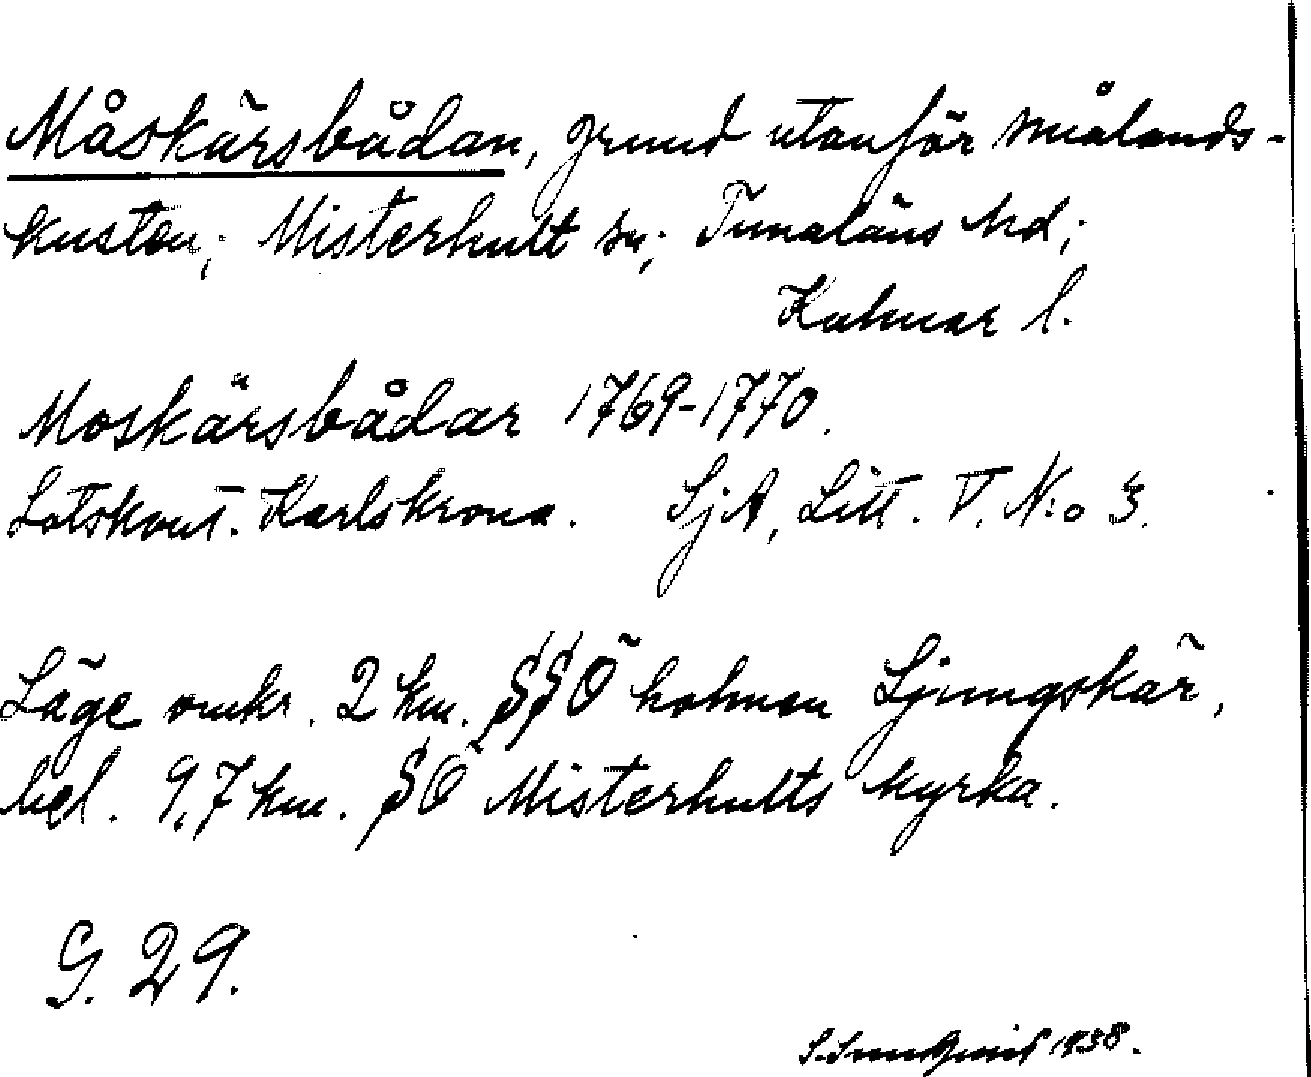 Måskärsbådan, grund utanför smålands-
kusten; Misterhult sn; Tunaläns hd;
Kalmar l.
Moskärsbådar 1769-1770.
Lotskont. Karlskrona. SjA, Litt. V. N:o 3.
Läge omkr. 2 km. SSÖ holmen Ljungskär,
bel. 9,7 km. SÖ Misterhults kyrka.
G. 29.
1938.